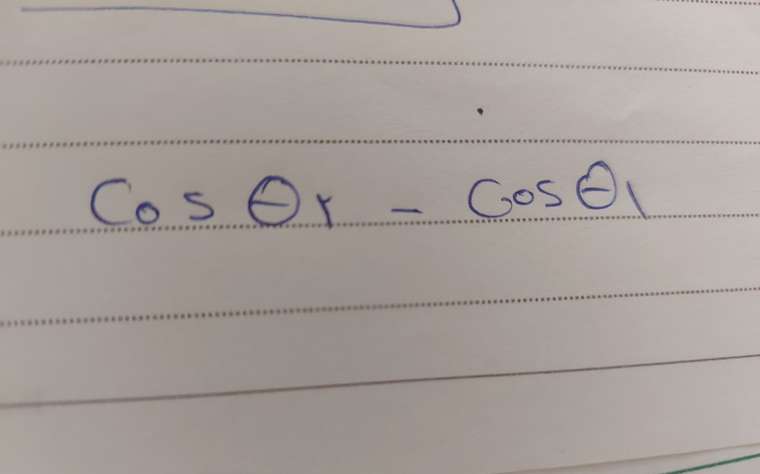 Cos θ۲ - Cos θ۱